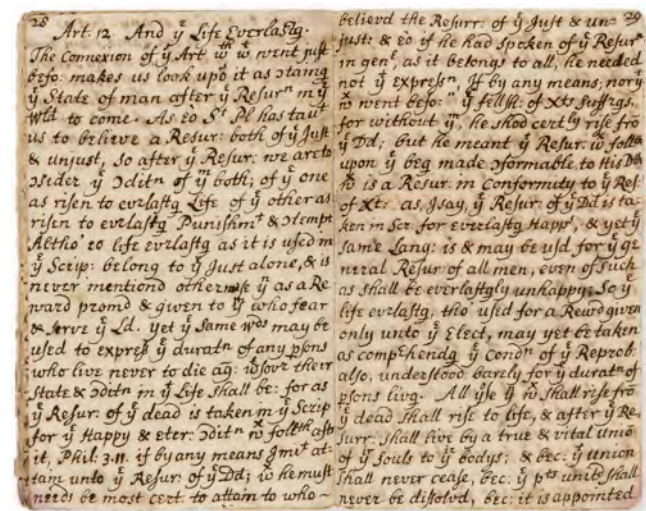 28
Art. 12. And yͤ Life Everlastg.
The Connexion of yͤ Art wᵗʰ wͭ went just
befo: makes us look upō it as ɔtaing
yͤ State of man after yͤ Resurⁿ in yͤ
Wˡᵈ to come. As so Sᵗ Pl has tauᵗ
us to believe a Resur: both of yͤ Just
& unjust, so after yͤ Resur: we are to
ɔsider yͤ ɔditn of yᵐ both; of yͤ one
as risen to evrlastg Life of yͤ other as
risen to evrlastg Punishmᵗ & ɔtempt
Altho' so life evrlastg as it is used in
yͤ Scrip: belong to yͤ Just alone, & is
never mentiond otherwise yⁿ as a Re
ward promd & given to yᵐ who fear
& serve yͤ Ld. yet yͤ same wᵈˢ may be
used to express yͤ duratⁿ of any psons
who live never to die ag: wsovr their
State & ɔditn in yͤ Life shall be: for as
yͤ Resur: of yͤ dead is taken in yͤ Scrip
for yͤ Happy & eter: ɔditn wͨ follᵗʰ aftr
it, Phil: 3.11. if by any means I mᵗ at-
tain unto yͤ Resur: of yͤ Dd; wͨ he must
needs be most cert: to attain to who ~
29
believd the Resurr: of yͤ Just & un-
just: & so if he had spoken of yͤ Resurⁿ
in genˡ, as it belongs to all, he needed
not yͤ expressn If by any means; nor yͤ
wͨ went befo: yͤ fellsh: of Xts Suffrgs,
for without yᵐ, he shod certly rise frō
yͤ Dd; but he meant yͤ Resur: wͨ follᵗʰ
upon yͤ beg made ɔformable to His Dth
wͨ is a Resur: in Conformity to yͤ Res:
of Xt: as, I say, yͤ Resur: of yͤ Dd is ta-
ken in Scr: for everlastg Happˢ, & yet yͤ
same Lang: is & may be usd for yͤ ge
neral Resur: of all men, even of such
as shall be everlastgly unhappy; So yͤ
life evrlastg, tho' usd for a Rewd given
only unto yͤ Elect, may yet be taken
as comphendg yͤ Condⁿ of yͤ Reprob:
also, understood barely for yͤ duratⁿ of
psons livg. All yse yͭ wͨ shall rise frō
yͤ dead shall rise to life, & after yͤ Re-
surr: shall live by a true & vital uniō
of yͤ souls to yͤ bodys; & bec: yͭ union
shall never cease, bec: yͤ pᵗˢ united shall
never be dissolvd, bec: it is appointed